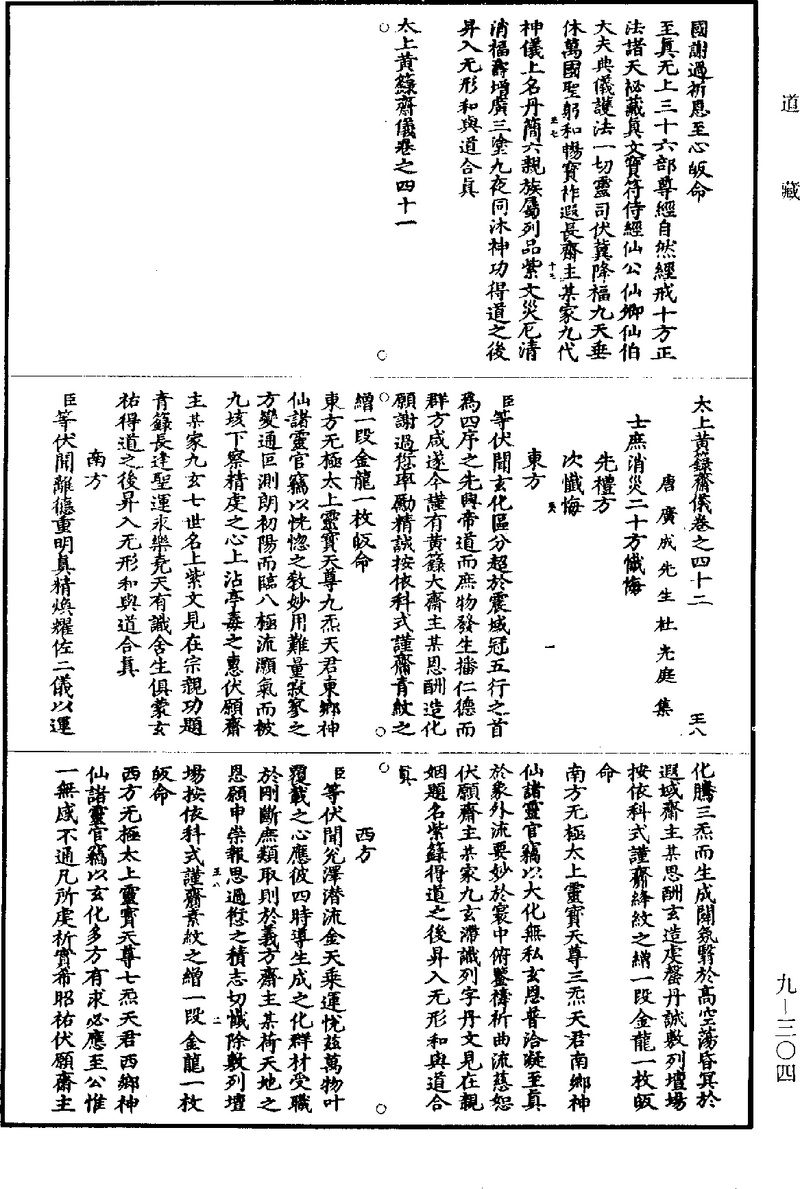 道藏
國謝過祈恩至心皈命
至真无上三十六部尊經自然經戒十方正
法諸天祕藏真文寶符侍經仙公仙卿仙伯
大夫典儀護法一切靈司伏冀降福九天垂
休萬國聖躬和暢寶祚遐長齋主某家九代
神儀上名丹簡六親族屬列品紫文災厄清
消福壽增廣三塗九夜同沐神功得道之後
昇入无形和與道合真
太上黃籙齋儀卷之四十一
太上黃籙齋儀卷之四十二
王八
唐廣成先生杜光庭集
士庶消災二十方懺悔
先禮方
次懺悔
東方
臣等伏聞玄化區分超於震域冠五行之首
為四序之先興帝道而庶物發生播仁德而
群方咸遂今謹有黃籙大齋主某思酬造化
願謝過愆率勵精誠按依科式謹齎青紋之
繒一段金龍一枚皈命
東方无極太上靈寶天尊九炁天君東鄉神
仙諸靈官竊以恍惚之教妙用難量寂寥之
方變通叵測朗初陽而臨八極流灝氣而被
九垓下察精虔之心上沾亭毒之惠伏願齋
主某家九玄七世名上紫文見在宗親功題
青籙長逢聖運永樂堯天有識含生俱蒙玄
祐得道之後昇入无形和與道合真
南方
臣等伏聞離德重明真精煥耀佐二儀以運
化騰三炁而生成闢氛翳於高空蕩昏冥於
遐域齋主某思酬玄造虔罄丹誠敷列壇場
按依科式謹齎絳紋之繒一段金龍一枚皈
命
南方无極太上靈寶天尊三炁天君南鄉神
仙諸靈官竊以大化無私玄恩普洽凝至真
於象外流要妙於寰中俯鑒禱祈曲流慈恕
伏願齋主某家九玄滯識列字丹文見在親
姻題名紫籙得道之後昇入无形和與道合
真
西方
臣等伏聞兌澤潜流金天乘運悅茲萬物叶
覆載之心應彼四時導生成之化群材受職
於剛斷庶類取則於義方齋主某荷天地之
恩願申崇報思過愆之積志切懺除敷列壇
場按依科式謹齎素紋之繒一段金龍一枚
皈命
西方无極太上靈寶天尊七炁天君西鄉神
仙諸靈官竊以玄化多方有求必應至公惟
一無感不通凡所虔祈實希昭祐伏願齋主
九—三〇四